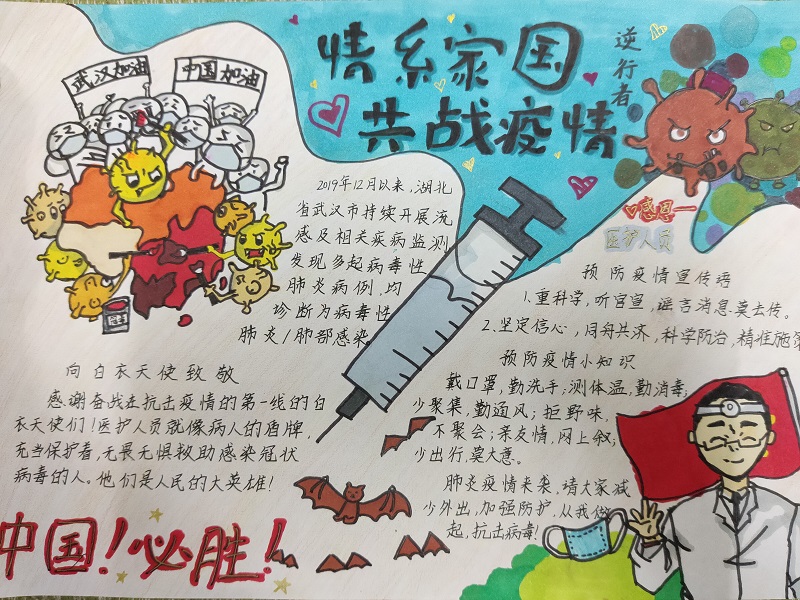 武汉加油
中国加油
情系家国
共战疫情
逆行者
感恩一
医护人员
2019年12月以来,湖北
省武汉市持续开展流
感及相关疾病监测
发现多起病毒性
肺炎病例,均
诊断为病毒性
肺炎/肺部感染
向白衣天使致敬
感谢奋战在抗击疫情的第一线的白
衣天使们!医护人员就像病人的盾牌,
充当保护者,无畏无惧救助感染冠状
病毒的人。他们是人民的大英雄!
中国!必胜!
预防疫情宣传语
1.重科学,听官宣,谣言消息莫去传。
2.坚定信心,同舟共济,科学防治,精准施策
预防疫情小知识
戴口罩,勤洗手;测体温,勤消毒;
少聚集,勤通风;拒野味,
不聚会;亲友情,网上叙;
少出行,莫大意。
肺炎疫情来袭,请大家减
少外出,加强防护,从我做
起,抗击病毒!